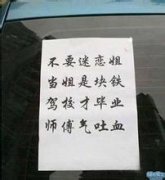 不要迷恋姐
当姐是块铁
驾校才毕业
师傅气吐血